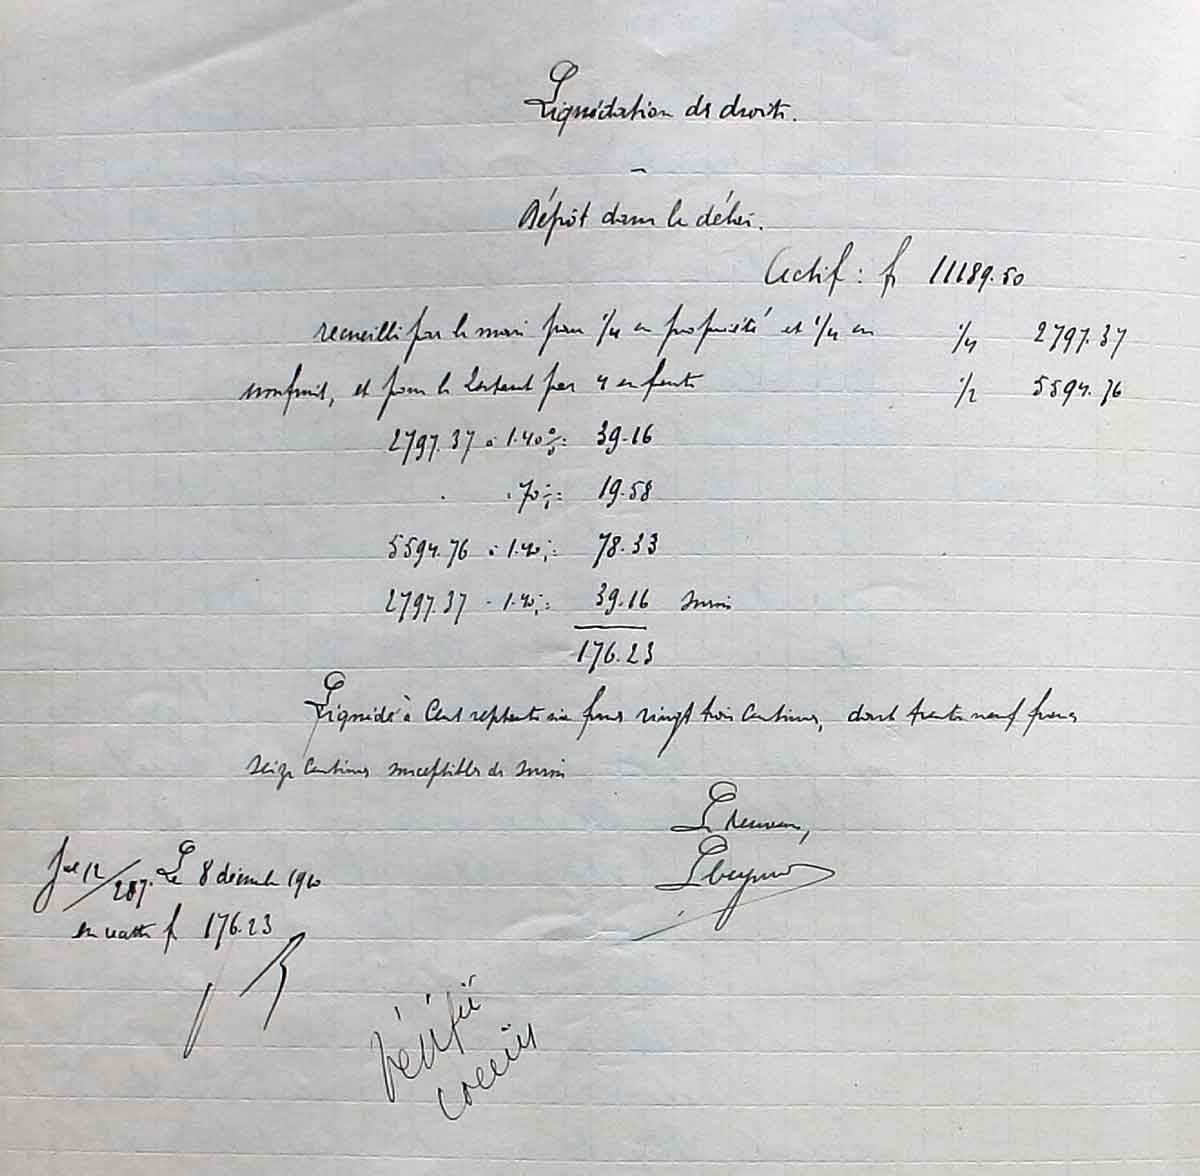 Liquidation de droits.
Dépôt dans le délai.
Actif : fr 11189.50
recueilli par le mari pour 1/4 en propriété et 1/4 en 1/4 2797.37
usufruit, et pour le restant par 4 enfants 1/2 5594.76
2797.37 à 1.40%: 39.16
. .70%: 19.58
5594.76 à 1.40%: 78.33
2797.37 - 1.40%: 39.16 sursis
176.23
Liquidé à Cent septante six francs vingt trois centimes, dont trente neuf francs
seize centimes susceptibles de sursis
Le Receveur,
Le 8 décembre 1920
287.
f 176.23
Vérifié